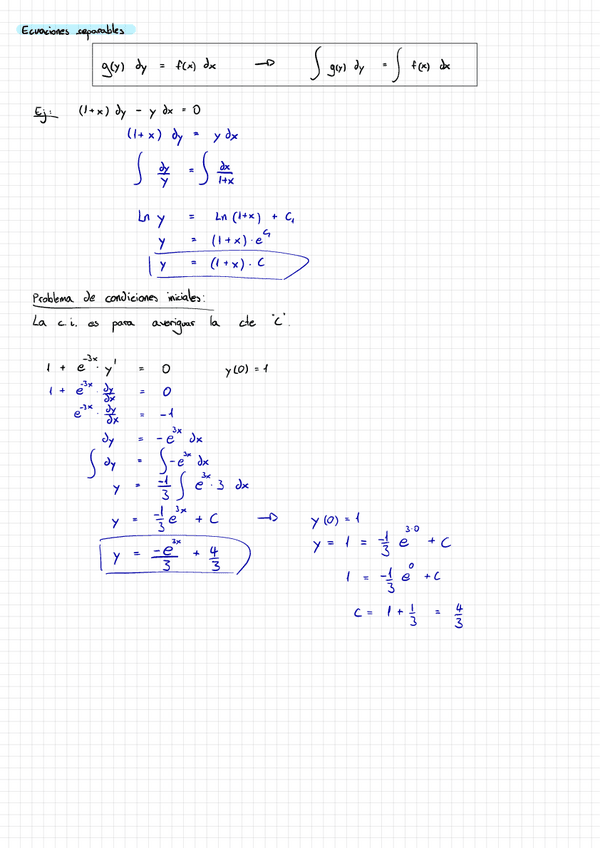 Ecuaciones separables
g(y) dy = f(x) dx → ∫ g(y) dy = ∫ f(x) dx
Ej: (1+x) dy - y dx = 0
(1+x) dy = y dx
∫ dy/y = ∫ dx/1+x
Ln y = Ln (1+x) + C₁
y = (1+x) · e^C₁
y = (1+x) · C
Problema de condiciones iniciales:
La c.i. es para averiguar la cte "C".
1 + e^-3x · y' = 0 y(0) = 1
1 + e^-3x · dy/dx = 0
e^-3x · dy/dx = -1
dy = -e^3x dx
∫ dy = ∫ -e^3x dx
y = -1/3 ∫ e^3x · 3 dx
y = -1/3 e^3x + C →
y = -e^3x/3 + 4/3
y(0) = 1
y = 1 = -1/3 e^3·0 + C
1 = -1/3 e^0 + C
C = 1 + 1/3 = 4/3